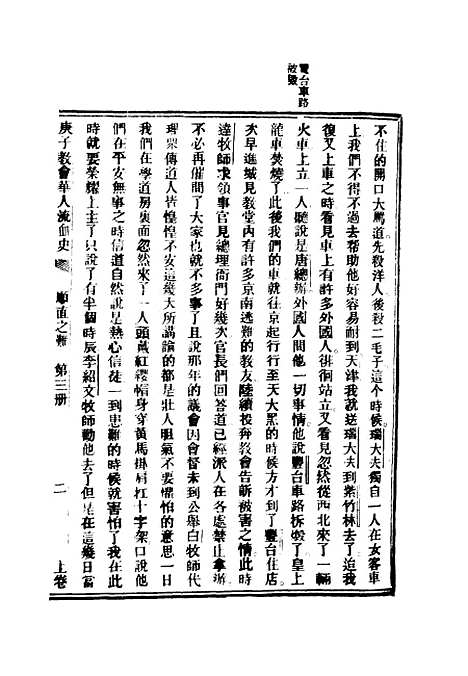 豐台車路
被毀
不住的開口大罵道先殺洋人後殺二毛子這個時候瑞大夫獨自一人在女客車
上我們不得不過去帮助他好容易耐到天津我就送瑞大夫到紫竹林去了迨我
復又上車之時看見車上有許多外國人徘徊站立又看見忽然從西北來了一輛
火車上立一人聽說是唐總辦外國人問他一切事情他說豐台車路拆燬了皇上
龍車焚燒了此後我們的車就往京起行行至天大黑的時候方才到了豐台住店
次早進城見教堂內有許多京南逃難的教友陸續投奔教會告訴被害之情此時
達牧師求領事官見總理衙門好幾次官長們回答道已經派人在各處禁止拿辦
不必再催問了大家也就不多事了且說那年的議會因會督未到公舉白牧師代
理衆傳道人皆惶惶不安這幾天所講論的都是壯人胆氣不要懼怕的意思一日
我們在學道房裏面忽然來了一人頭戴紅纓帽身穿黃馬掛肩扛十字架口說他
們在平安無事之時信道自然說是熱心信徒一到患難的時候就害怕了我在此
時就要榮耀上主了只說了有半個時辰李紹文牧師勸他去了但是在這幾日當
庚子教會華人流血史 順直之難 第三册 二 上卷